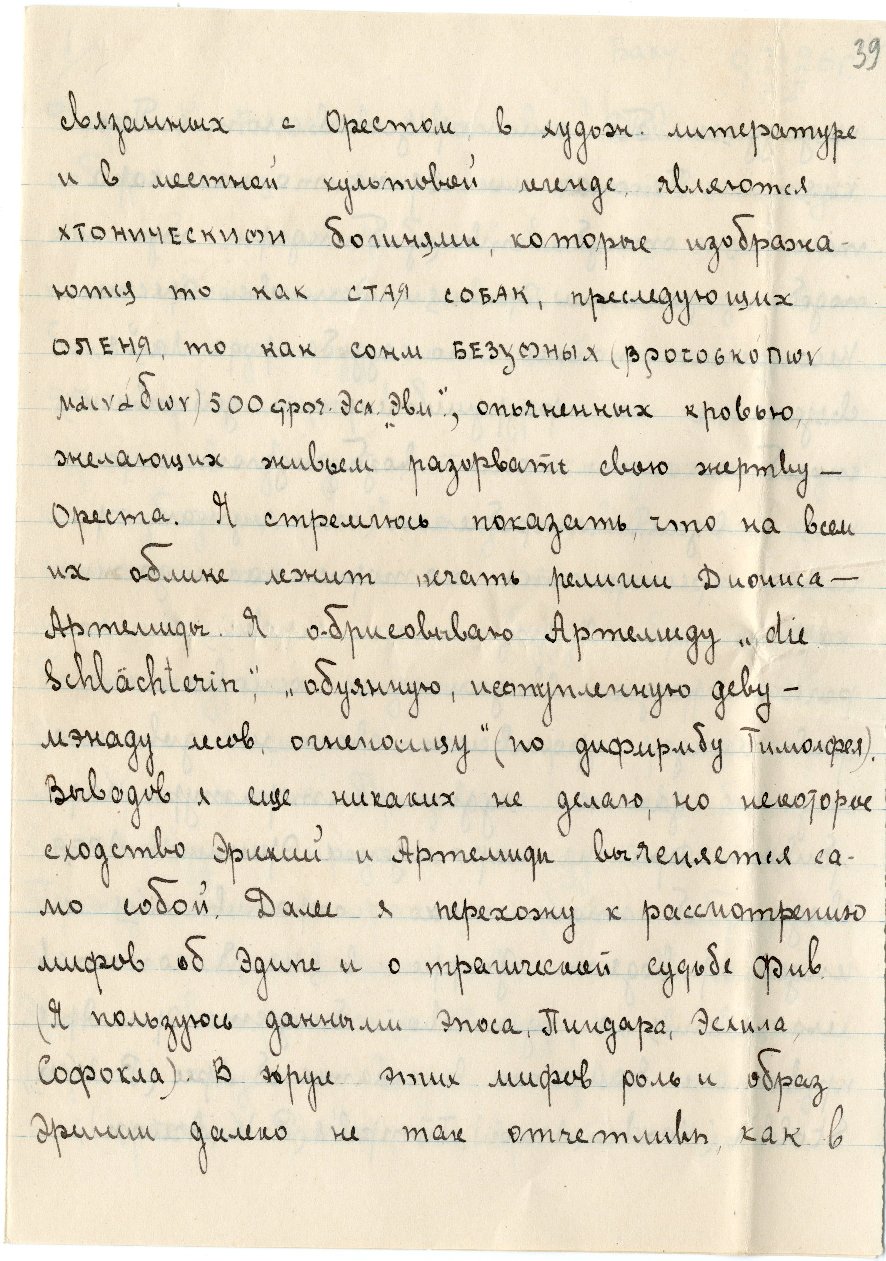 39
связанных с Орестом, в худож. литературе
и в местной культовой легенде, являются
ХТОНИЧЕСКИМИ богинями, которые изобража-
ются то как СТАЯ СОБАК, преследующих
ОЛЕНЯ, то как сонм БЕЗУМНЫХ (βροτοσκόπων
μαινάδων) 500 строч. Эсх. „Эвм.“, опьяненных кровью,
желающих живьем разорвать свою жертву —
Ореста. Я стремлюсь показать, что на всем
их облике лежит печать религии Диониса —
Артемиды. Я обрисовываю Артемиду „die
Schlächterin“, „обуянную, исступленную деву —
мэнаду лесов, огненосицу“ (по дифирмбу Тимофея).
Выводов я еще никаких не делаю, но некоторое
сходство Эриний и Артемиды вычленяется са-
мо собой. Далее я перехожу к рассмотрению
мифов об Эдипе и о трагической судьбе Фив.
(Я пользуюсь данными эпоса, Пиндара, Эсхила,
Софокла). В круге этих мифов роль и образ
Эринии далеко не так отчетливы, как в